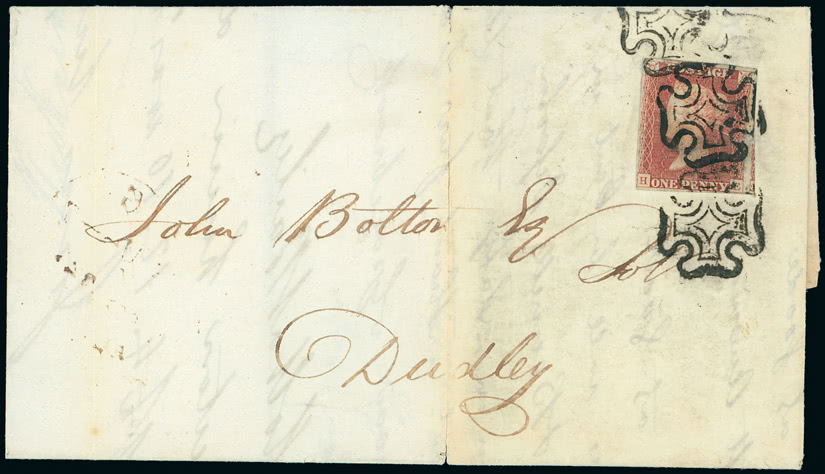 POSTAGE
H ONE PENNY E
John Bolton Esq
Sol
Dudley